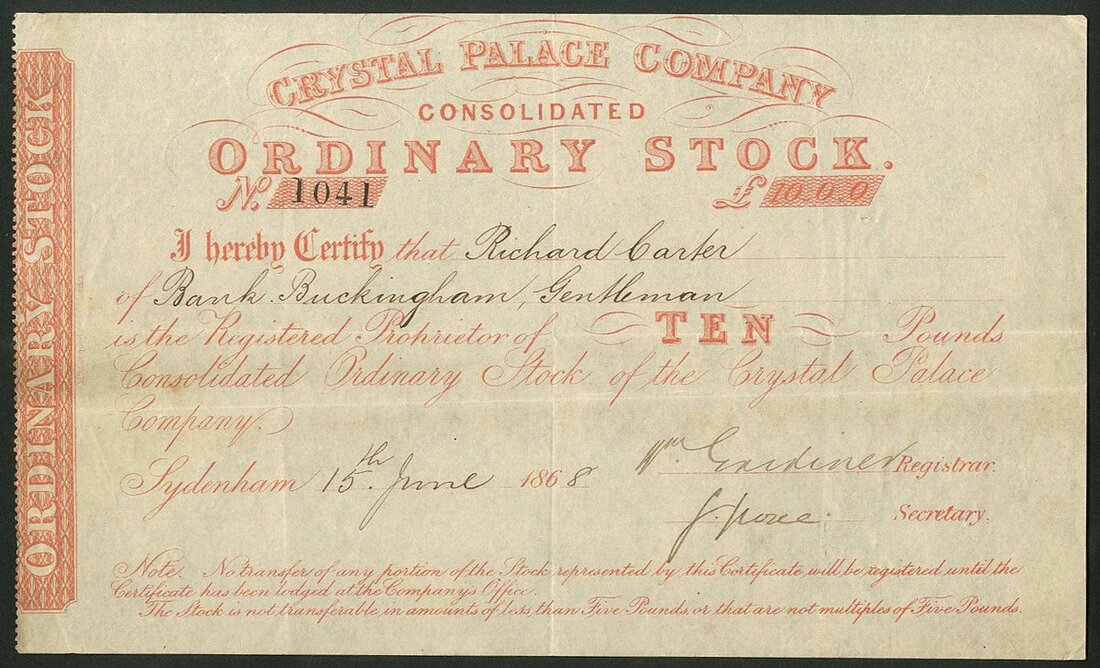 CRYSTAL PALACE COMPANY
CONSOLIDATED
ORDINARY STOCK.
No. 1041 £ 10.0.0
I hereby Certify that Richard Carter
of Bank. Buckingham, Gentleman
is the Registered Prohrietor of TEN Pounds
Consolidated Ordinary Stock of the Crystal Palace
Company.
Sydenham 15th June 1868 Wm. Gardiner Registrar.
Secretary.
Note. No transfer of any portion of the Stock represented by this Certificate will be registered until the
Certificate has been lodged at the Company's Office.
The Stock is not transferable in amounts of less than Five Pounds, or that are not multiples of Five Pounds.
ORDINARY STOCK